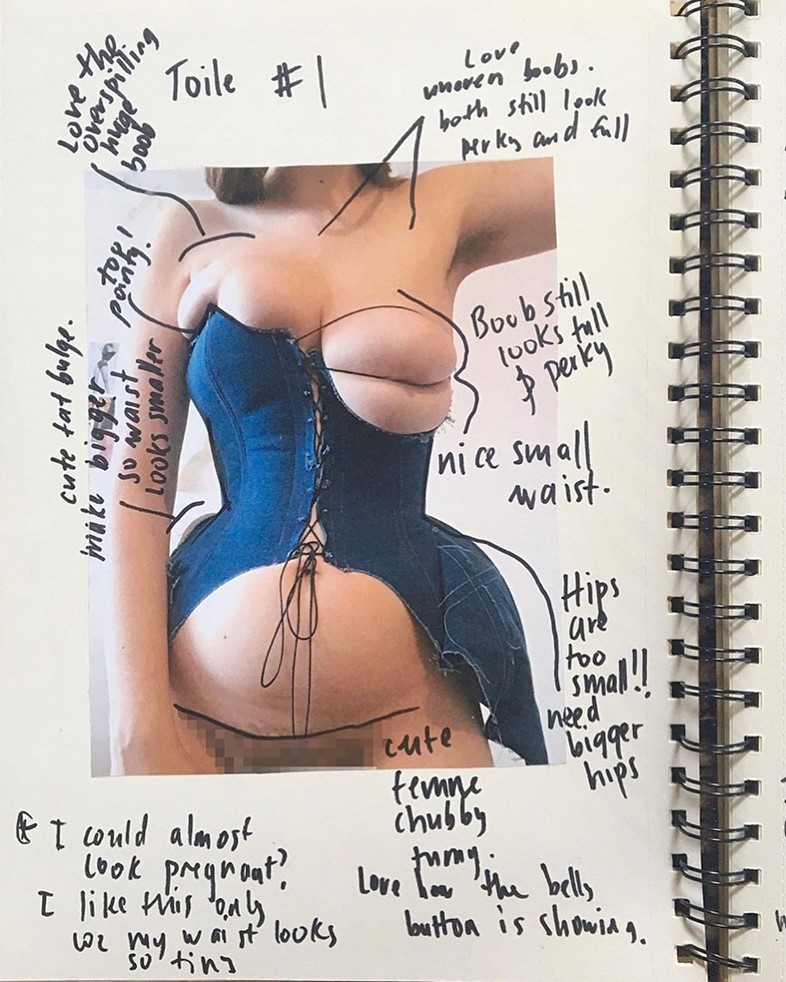 Toile #1
Love the
overspilling
huge
boob
Love
uneven boobs.
both still look
perky and full
too
pointy.
cute fat bulge.
make bigger
so waist
looks smaller
Boob still
looks full
& perky
nice small
waist.
Hips
are
too
small!!
need
bigger
hips
cute
femme
chubby
tummy.
Love how the belly
button is showing.
* I could almost
look pregnant?
I like this only
bc my waist looks
so tiny